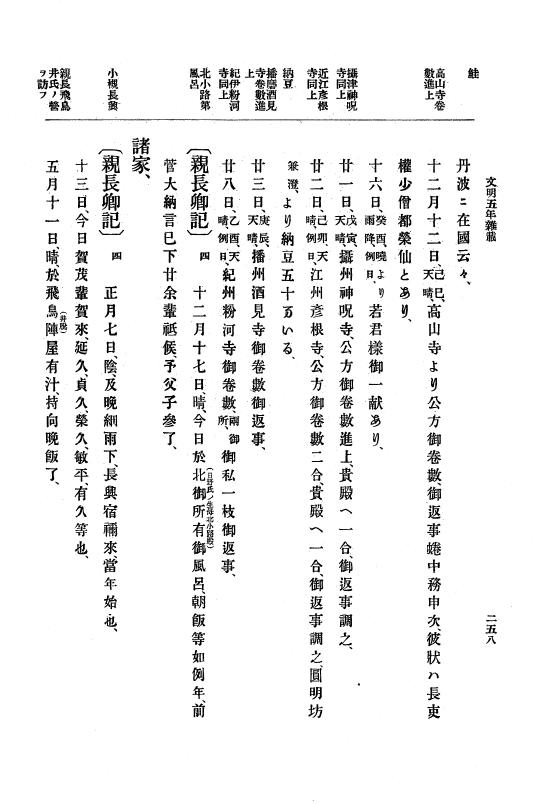 文明五年雜載
二五八
丹波ニ在國云々、
十二月十二日、己巳、天晴、高山寺より公方御卷數、御返事蜷中務申次、彼狀ハ長吏
權少僧都榮仙とあり、
十六日、癸酉、曉より雨降、例日、若君樣御一獻あり、
廿一日、戊寅、天晴、攝州神呪寺、公方御卷數進上、貴殿へ一合、御返事調之、
廿二日、己卯、天晴、例日、江州彥根寺、公方御卷數二合、貴殿へ一合、御返事調之、圓明坊
兼澄、より納豆五十まいる、
廿三日、庚辰、天晴、播州酒見寺御卷數御返事、
廿八日、乙酉、天晴、例日、紀州粉河寺御卷數、兩御所、御私一枝御返事、
〔親長卿記〕 四 十二月十七日、晴、今日於北御所有御風呂、朝飯等如例年、前
菅大納言已下廿余輩祗候、予父子參了、
諸家、
〔親長卿記〕 四 正月七日、陰、及晚細雨下、長興宿禰來、當年始也、
十三日、今日賀茂輩賀來、延久、貞久、榮久、敏平、有久等也、
五月十一日、晴、於飛鳥(井脫)陣屋有汁、持向晚飯了、
鮭
高山寺卷數進上
攝津神呪寺同上
近江彥根寺同上
納豆
播磨酒見寺卷數進上
紀伊粉河寺同上
北小路第風呂
小槻長興
親長飛鳥井氏ノ營ヲ訪フ